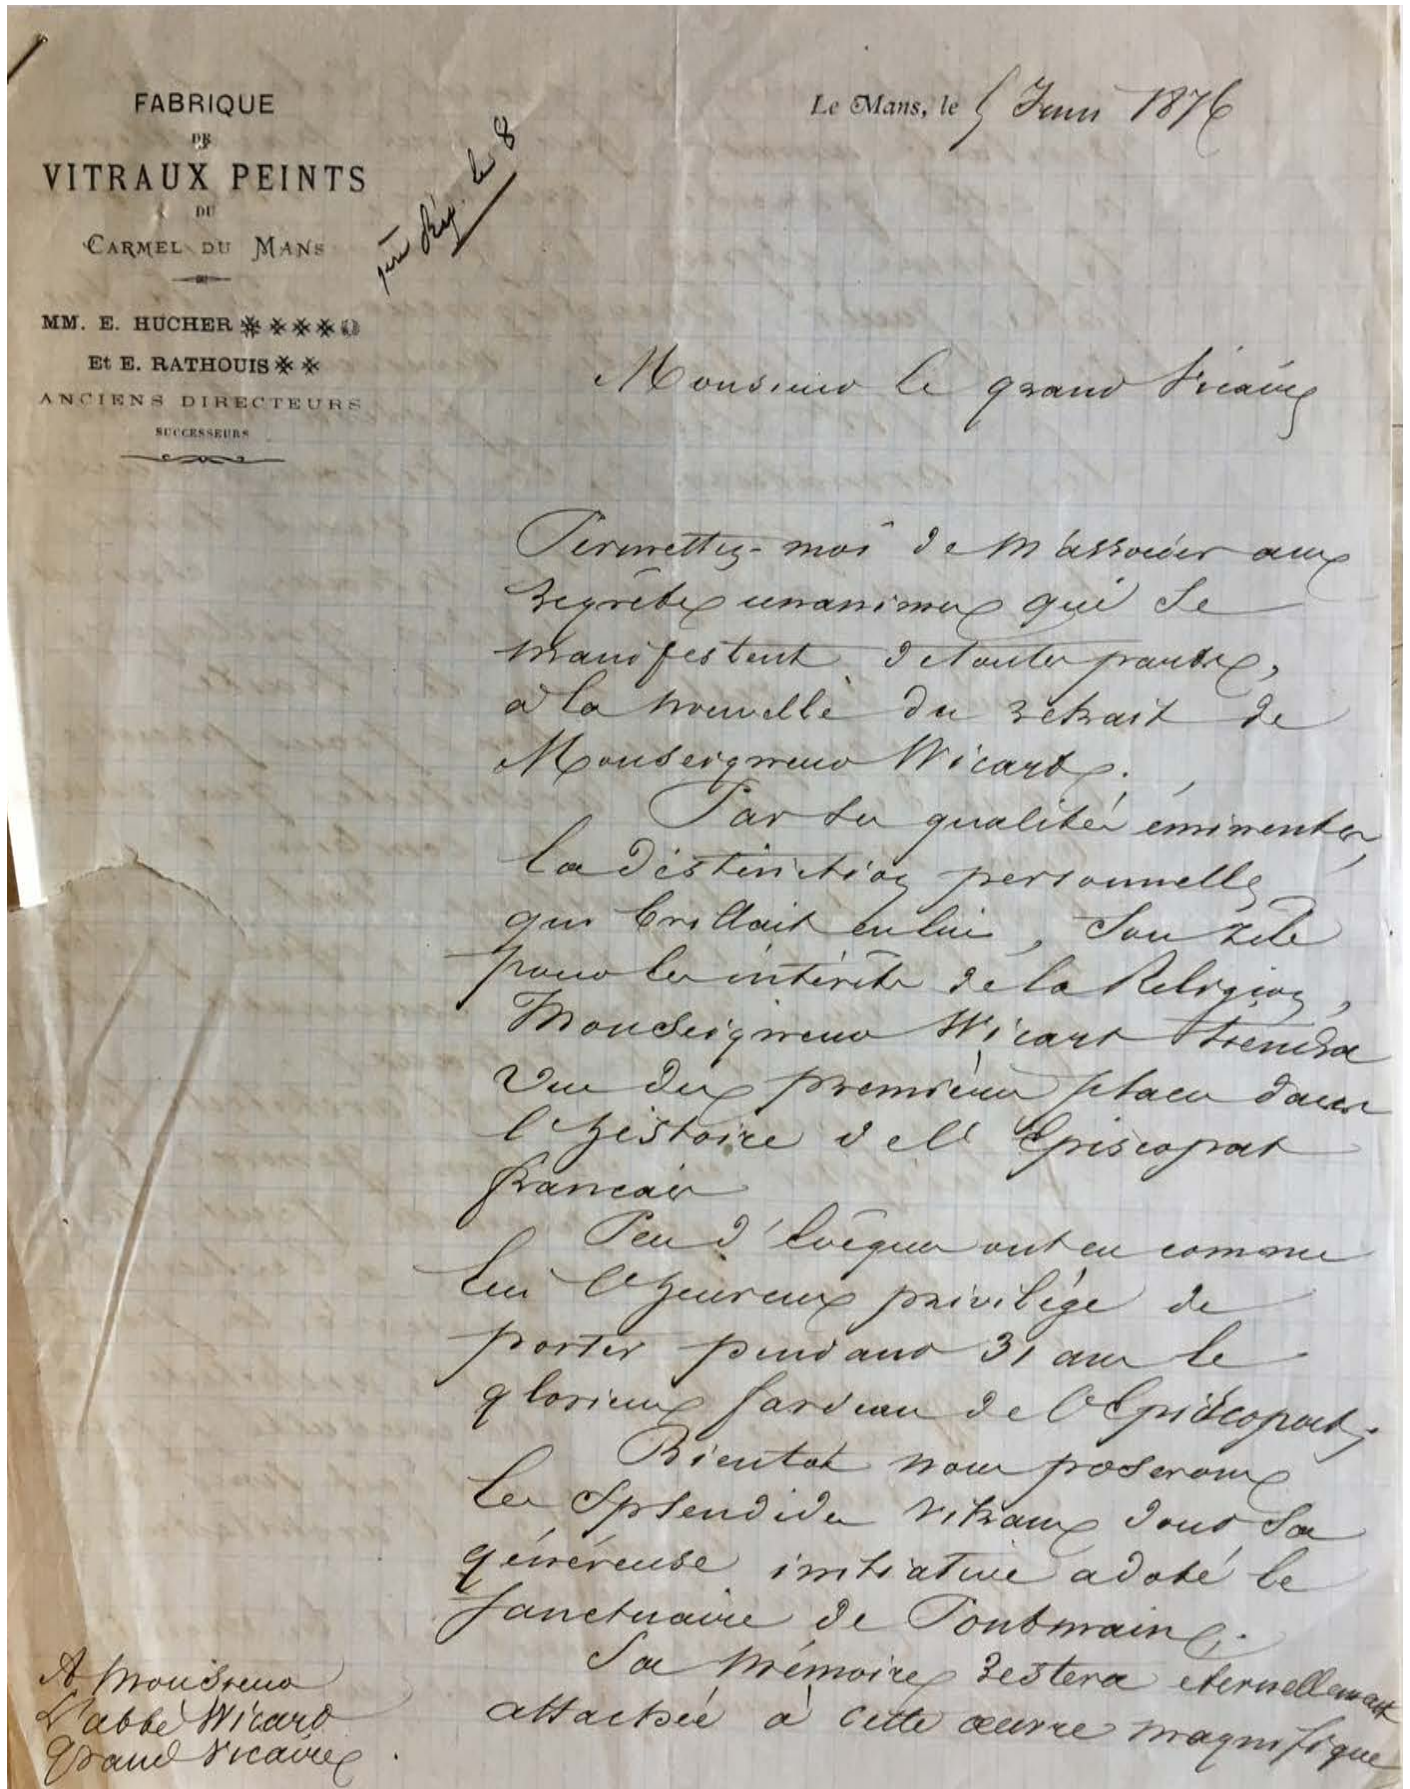 FABRIQUE
DE
VITRAUX PEINTS
DU
CARMEL DU MANS
MM. E. HUCHER
Et E. RATHOUIS
ANCIENS DIRECTEURS
SUCCESSEURS
Le Mans, le 5 Juin 1876
Rép. le 8
Monsieur le grand Vicaire
Permettez-moi de m'associer aux
regrêts unanimes qui se
manifestent de toutes parts,
à la nouvelle du retrait de
Monseigneur Wicart.
Par ses qualités éminentes,
la distinction personnelle
qui brillait en lui, son zèle
pour les intérêts de la Religion,
Monseigneur Wicart tiendra
une des premières places dans
l'histoire de l'Episcopat
français
Peu d'Evêques ont eu comme
lui l'heureux privilège de
porter pendant 31 ans le
glorieux fardeau de l'Episcopat.
Bientôt nous poserons
les splendides vitraux dont sa
généreuse initiative a doté le
sanctuaire de Pontmain.
Sa mémoire restera eternellement
attachée à cette œuvre magnifique
A Monsieur
L'abbé Wicart
Grand Vicaire.